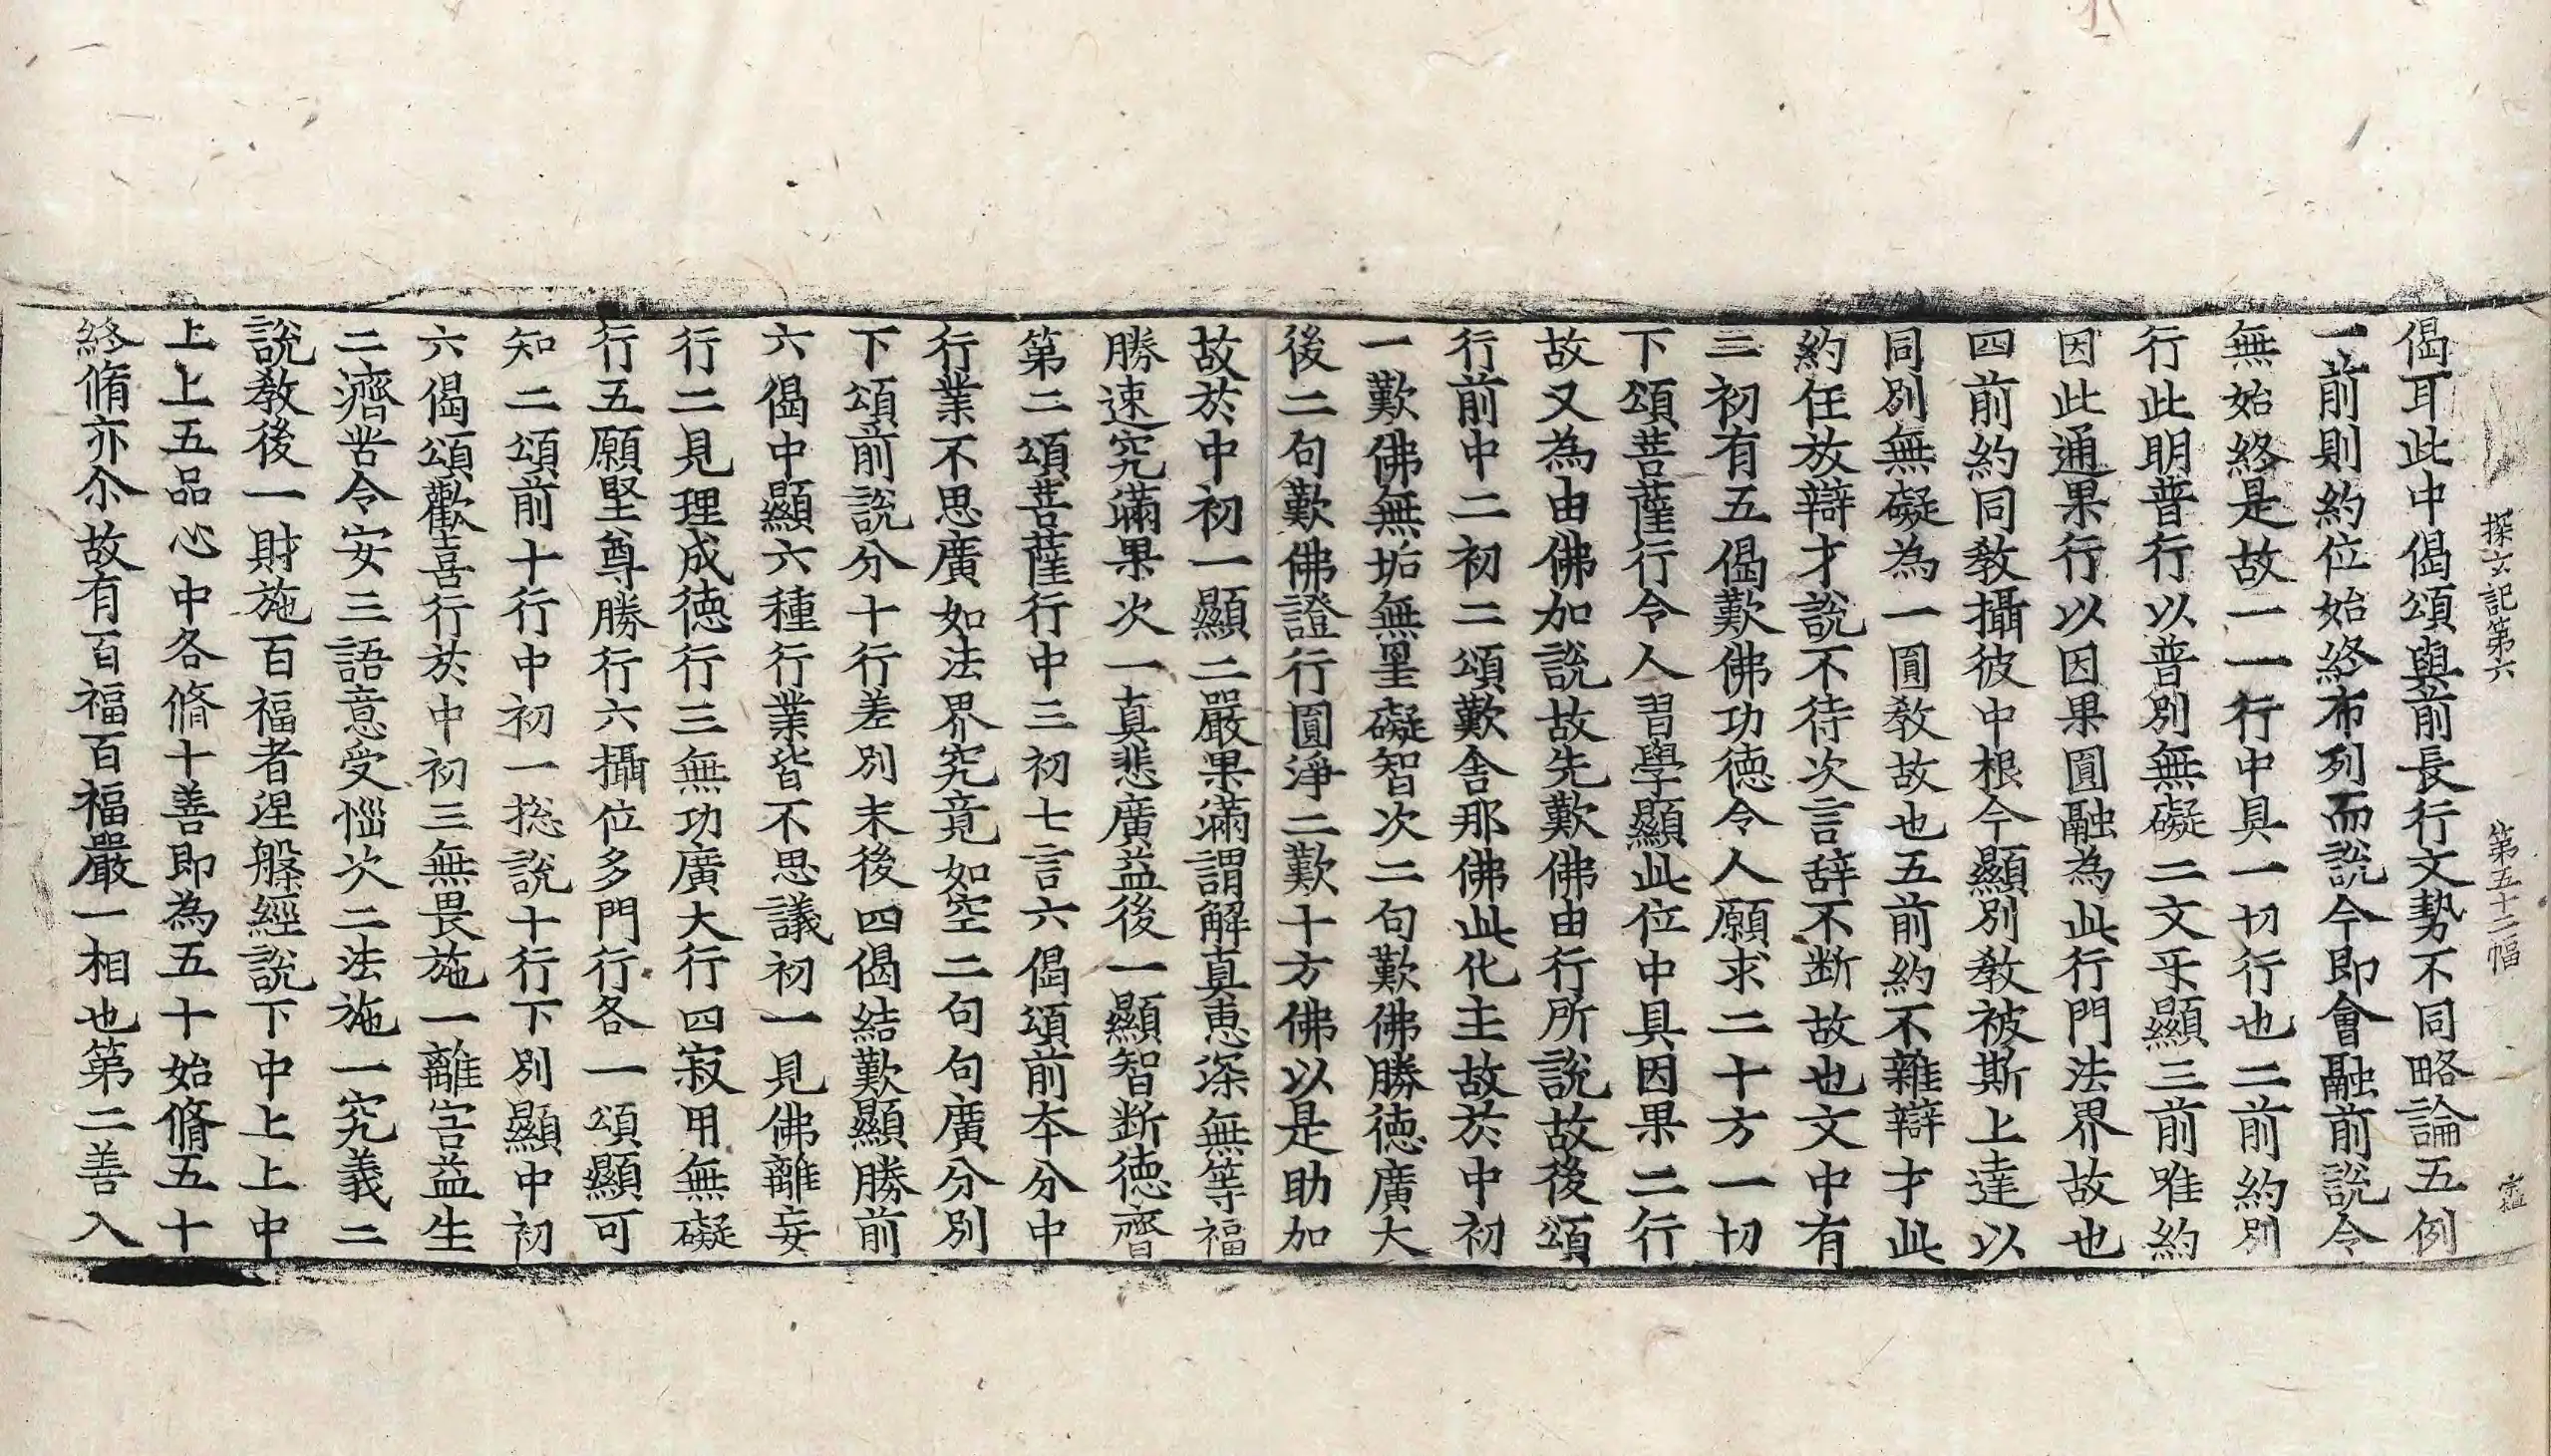 探玄記第六　第五十二幅
偈耳此中偈頌與前長行文勢不同略論五例
一前則約位始終布列而說今即會融前說令
無始終是故一一行中具一切行也二前約別
行此明普行以普別無礙二文乎顯三前唯約
因此通果行以因果圓融為此行門法界故也
四前約同教攝彼中根今顯別教被斯上達以
同別無礙為一圓教故也五前約不雜辯才此
約任放辯才說不待次言辞不断故也文中有
三初有五偈歎佛功德令人願求二十方一切
下頌菩薩行令人習學顯此位中具因果二行
故又為由佛加說故先歎佛由行所說故後頌
行前中二初二頌歎舍那佛此化主故於中初
一歎佛無垢無罣礙智次二句歎佛勝德廣大
後二句歎佛證行圓淨二歎十方佛以是助加
故於中初一顯二嚴果滿謂解真恵深無等福
勝速究滿果次一真悲廣益後一顯智断德齊
第二頌菩薩行中三初七言六偈頌前本分中
行業不思廣如法界究竟如空二句句廣分別
下頌前說分十行差別末後四偈結歎顯勝前
六偈中顯六種行業皆不思議初一見佛離妄
行二見理成德行三無功廣大行四寂用無礙
行五願堅尊勝行六攝位多門行各一頌顯可
知二頌前十行中初一捴說十行下別顯中初
六偈頌歡喜行於中初三無畏施一離害益生
二濟苦令安三語意受惱次二法施一究義二
說教後一財施百福者涅槃經說下中上上中
上上五品心中各脩十善即為五十始脩五十
終脩亦尒故有百福百福嚴一相也第二善入